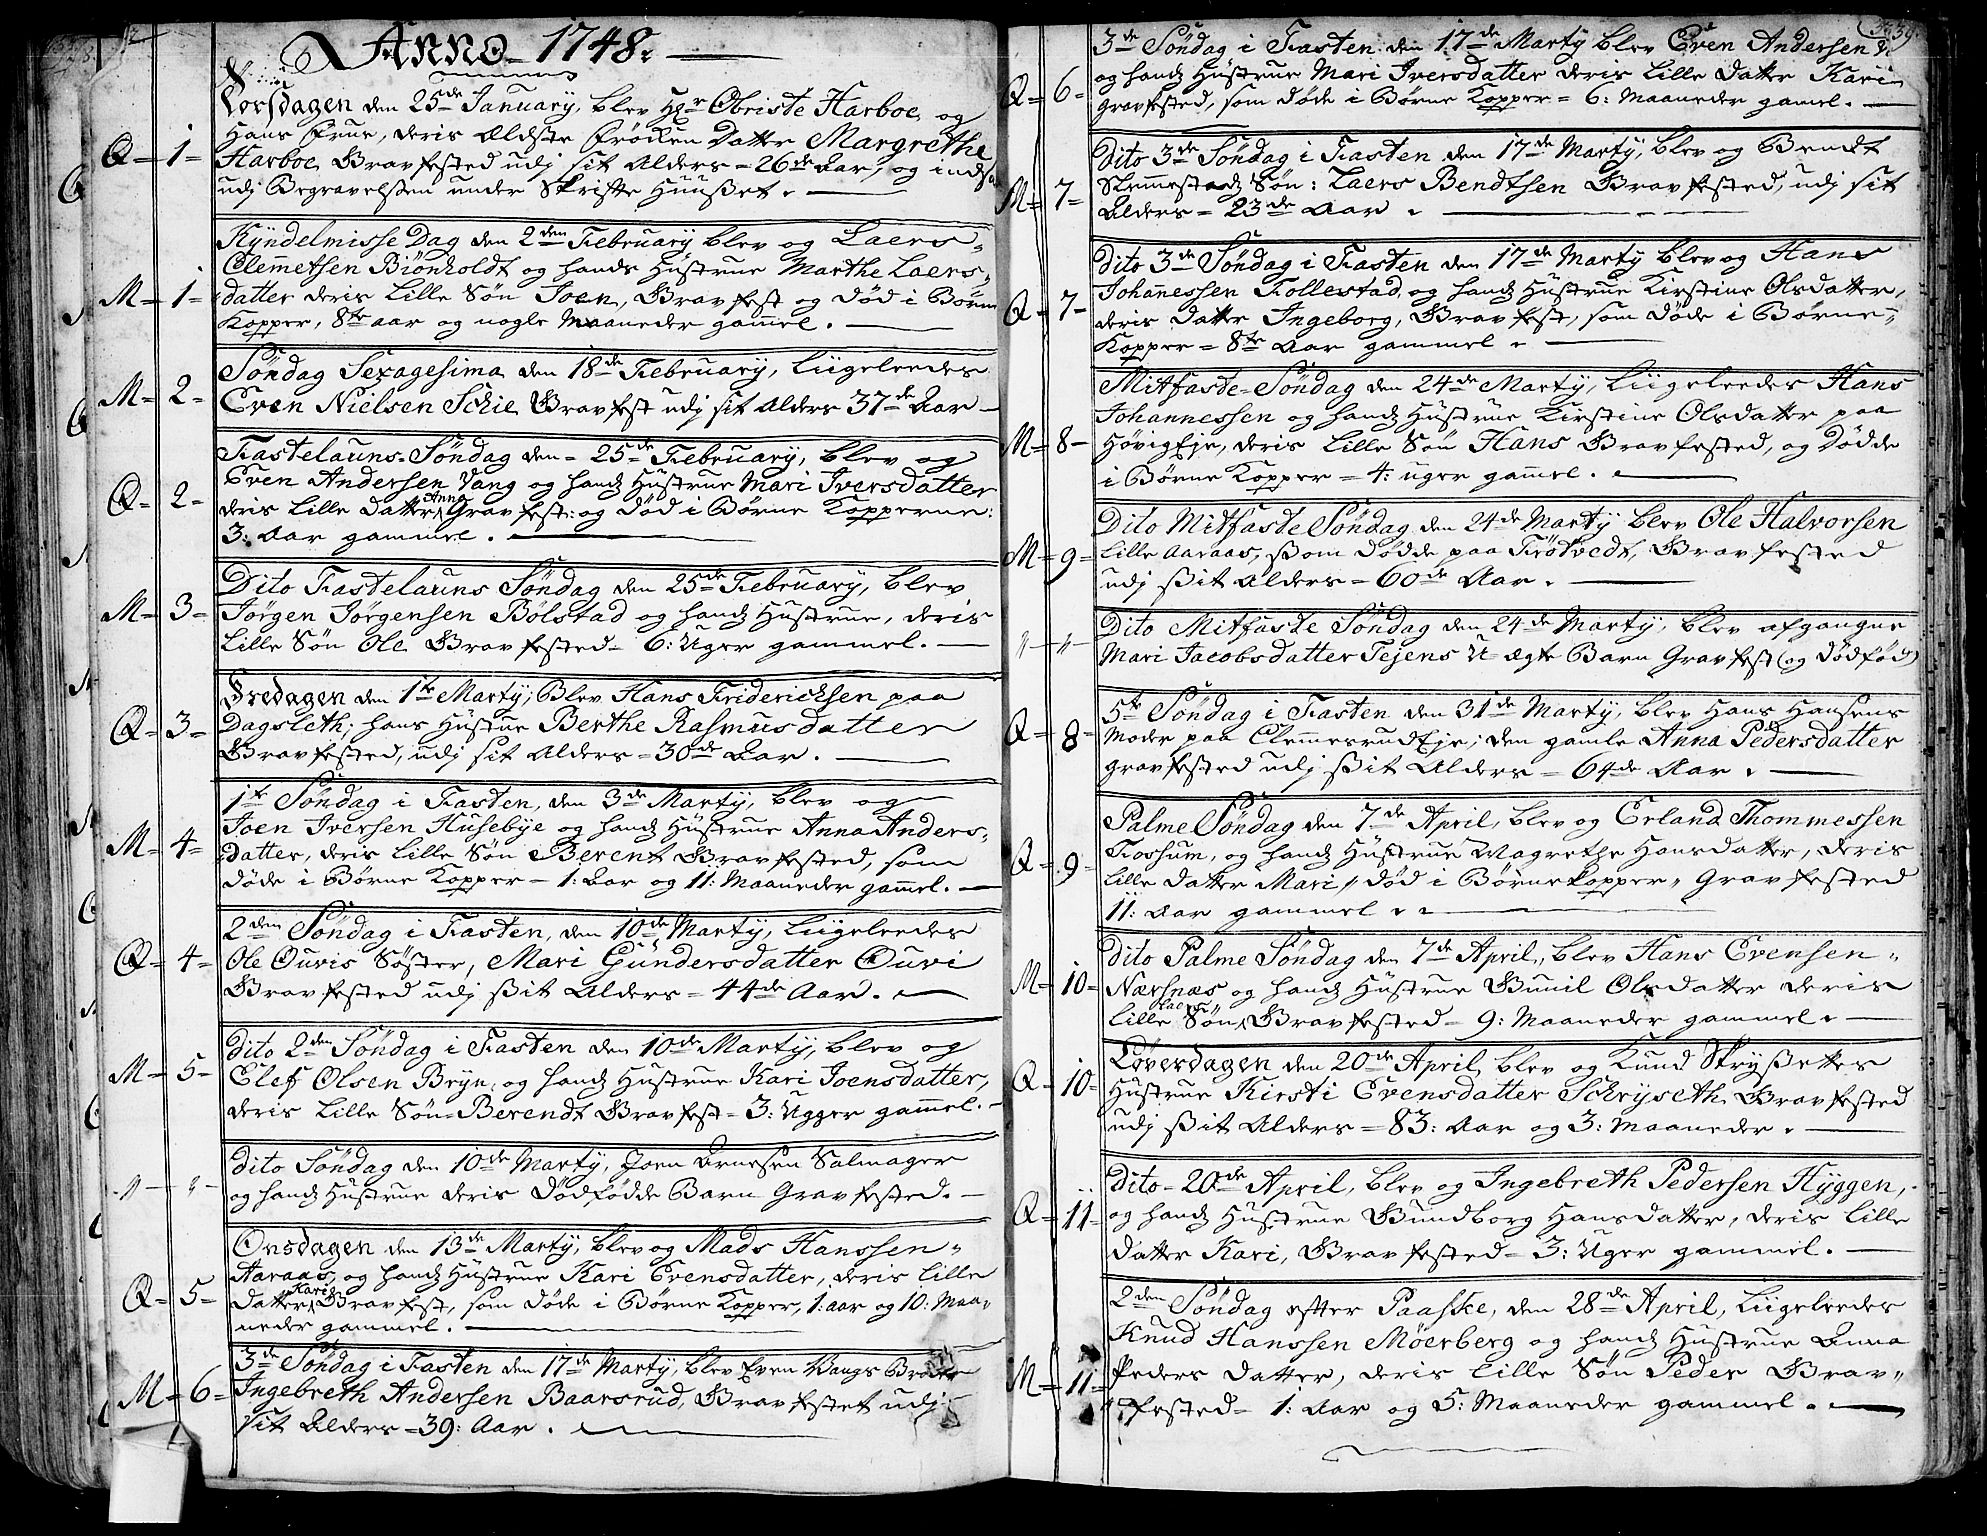 Anno 1748.
Torsdagen den 25de January, blev Hr Obriste Harboe, og
Hans Frue, deris Ældste Fröcken Datter Margrethe
Q = 1 = Harboe, Gravfested udj sit Alders = 26de Aar, og indsa
udj Begravelsten under Skrifte Huusset.
Kyndelmisse Dag den 2den February blev og Laers
Clemmetsen Biönholdt og hands Hustrue Marthe Laers
M = 1 = datter deris Lille Sön Joen, Gravfest og död i Börne
Kopper, 8te aar og nogle Maaneder gammel.
Söndag Sexagesima den 18de February, Liigeleedes
M = 2 = Even Nielsen Schie Gravfest udj sit Alders 37de Aar
Fastelauns-Söndag den 25de February, blev og
Even Andersen Vang og hands Hustrue Mari Iversdatter
Q = 2 = deris Lille Datter Anna Gravfest: og död i Börne Kopperne:
3: Aar gammel.
Dito Fastelauns Söndag den 25de February, blev
M = 3 = Jörgen Jörgensen Bölstad og hands Hustrue, deris
Lille Sön Ole Gravfested = 6: Uger gammel.
Fredagen den 1te Marty, blev Hans Fridericksen paa
Q = 3 = Dagsleth, hans Hustrue Berthe Rasmusdatter
Gravfested, udj sit Alders = 30de Aar.
1te Söndag i Fasten, den 3de Marty, blev og
Joen Iversen Husebye og hands Hustrue Anna Anders-
M = 4 = datter, deris Lille Sön Berent Gravfested, som
döde i Börne Kopper = 1: Aar og 11: Maaneder gammel.
2den Söndag i Fasten, den 10de Marty, Liigeleedes
Q = 4 = Ole Ouvis Söster, Mari Gundersdatter Ouvi
Gravfested udj ssit Alders = 44de Aar.
Dito 2den Söndag i Fasten den 10de Marty, blev og
M = 5 = Elef Olsen Bryn, og hands Hustrue Kari Joensdatter,
deris Lille Sön Berendt Gravfest = 3: Ugger gammel.
Dito Söndag den 10de Marty, Joen Arnesen Salmager
og hands Hustrue deris Dödfödde Barn Gravfested.
Onsdagen den 13de Marty, blev og Mads Hanssen
Aaraas, og hands Hustrue Kari Evensdatter, deris Lille
Q = 5 = Datter Kari Gravfest, som döde i Börne Kopper, 1: aar og 10: Maa-
neder gammel.
3de Söndag i Fasten den 17de Marty, blev Even Vangs Broder
M = 6 = Ingebreth Andersen Baarsrud, Gravfestet udj
sit Alders = 39: Aar.
3de Söndag i Fasten den 17de Marty blev Even Andersen
Q = 6 = og hands Hustrue Mari Iversdatter deris Lille Datter Kari
Gravfested, som döde i Börne Kopper = 6: Maaneder gamel.
Dito 3de Söndag i Fasten den 17de Marty, blev og Bendt
M = 7 = Slemmestads Sön: Laers Bendtsen Gravfested, udj sit
Alders = 23de Aar.
Dito 3de Söndag i Fasten den 17de Marty blev og Hans
Johannessen Follestad og hands Hustrue Kirstine Olsdatter,
Q = 7 = deris Datter Ingeborg, Gravfest, som döde i Börne-
Kopper = 8te Aar gammel.
Mitfaste-Söndag den 24de Marty, Liigeleedes Hans
Johannessen og hands Hustrue Kirstine Olsdatter paa
M = 8 = HövigEje, deris Lille Sön Hans Gravfested, og Dödde
i Börne Kopper = 4: uger gammel.
Dito Mitfaste Söndag den 24de Marty blev Ole Halvorsen
M = 9 = Lille Aaraas, ssom dödde paa Frötvedt, Gravfested
udj ssit Alders = 60de Aar.
Dito Mitfaste Söndag den 24de Marty, blev afgangne
Mari Jacobsdatter Tejens U-ægte Barn Gravfest (og dödföd)
5te Söndag i Fasten den 31de Marty, blev Hans Hansens
Q = 8 = Moder paa ClemmesrudEje, den gamle Anna Pedersdatter
Gravfested udj ssit Alders = 64de Aar.
Palme Söndag den 7de April, blev og Erland Thommessen
Q = 9 = Fossum, og hands Hustrue Magrethe Hansdatter, deris
Lille Datter Mari, död i Börnekopper, Gravfested
11: Aar gammel.
Dito Palme Söndag den 7de April, blev Hans Evensen
M = 10 = Nærsnæs og hands Hustrue Gunil Olsdatter deris
Lille Sön Laers Gravfested = 9: Maaneder gammel.
Löverdagen den 20de April blev og Knud Skryssettes
Q = 10 = Hustrue Kirsti Evensdatter Schryseth Gravfested
udj ssit Alders = 83: Aar og 3: Maaneder.
Dito = 20de April, blev og Ingebreth Pedersen Hyggen,
Q = 11 = og hands Hustrue Gundborg Hansdatter, deris Lille
Datter Kari, Gravfested = 3: Uger gammel.
2den Söndag efter Paaske, den 28de April, Liigeleedes
Knud Hanssen Möerberg og hands Hustrue Anna
M = 11 = Peders Datter, deris Lille Sön Peder Grav-
fested = 1: Aar og 5: Maaneder gammel.